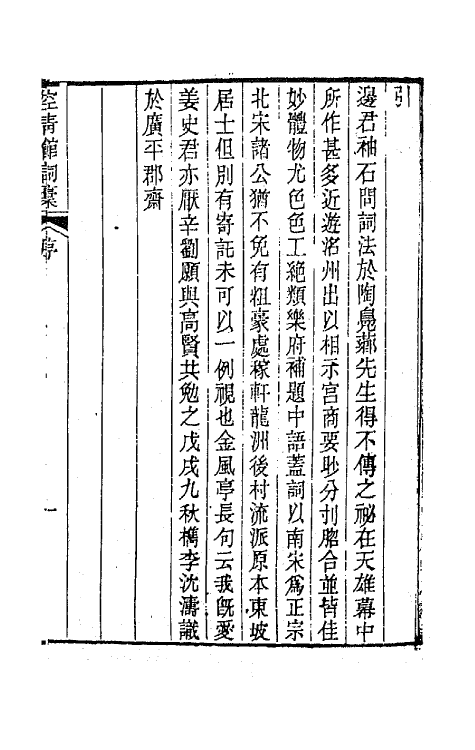 引
邊君袖石問詞法於陶鳧薌先生得不傳之祕在天雄幕中
所作甚多近遊洺州出以相示宮商要眇分刌脗合並皆佳
妙體物尤色色工絕類樂府補題中語蓋詞以南宋爲正宗
北宋諸公猶不免有粗豪處稼軒龍洲後村流派原本東坡
居士但別有寄託未可以一例視也金風亭長句云我旣愛
姜史君亦厭辛劉願與高賢共勉之戊戌九秋檇李沈濤識
於廣平郡齋
空青館詞稾
序
一